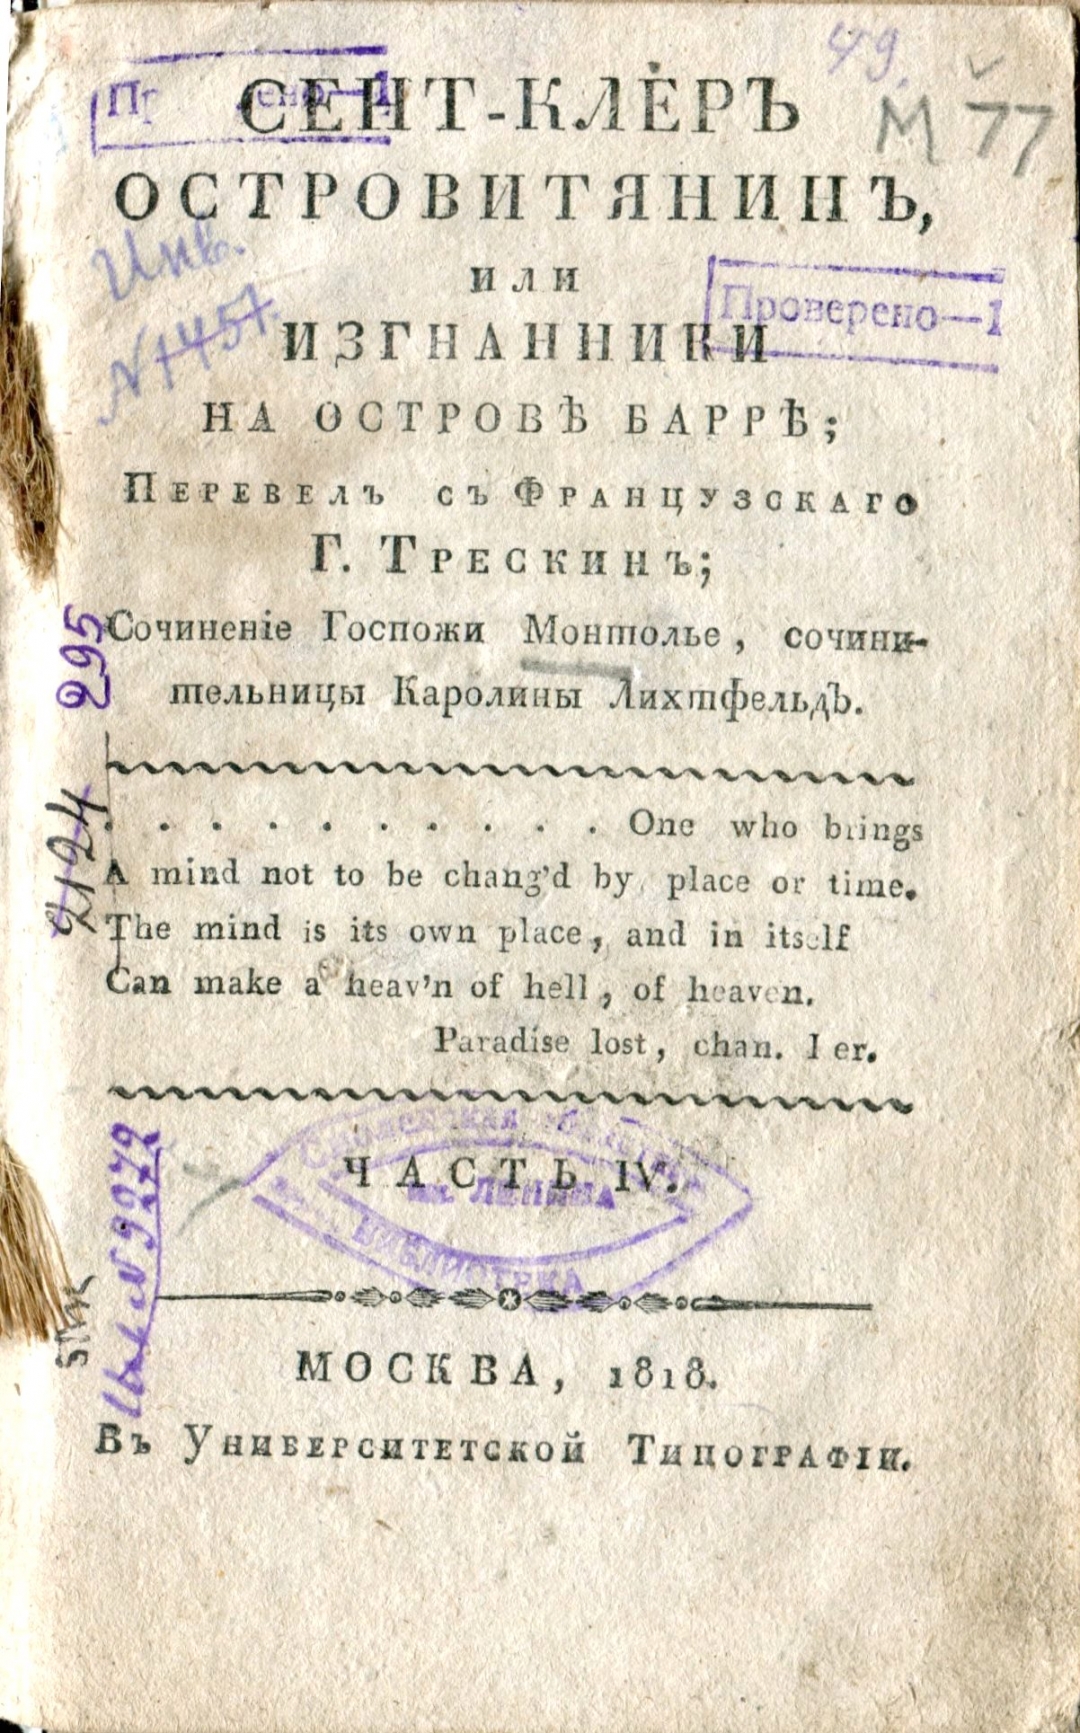 49.
М 77
СЕНТ-КЛЕРЪ
ОСТРОВИТЯНИНЪ,
ИЛИ
Инв.
№1457.
Проверено—1
ИЗГНАННИКИ
НА ОСТРОВѢ БАРРѢ;
Перевелъ съ Французскаго
Г. Трескинъ;
295
Сочиненіе Госпожи Монтолье, сочини-
тельницы Каролины Лихтфельдъ.
2124
. . . . . . . . . . One who brings
A mind not to be chang'd by place or time.
The mind is its own place, and in itself
Can make a heav'n of hell, of heaven.
Paradise lost, chan. I er.
ЧАСТЬ IV.
им. Ленина
БИБЛИОТЕКА
Инв. №9272
МОСКВА, 1818.
Въ Университетской Типографіи.